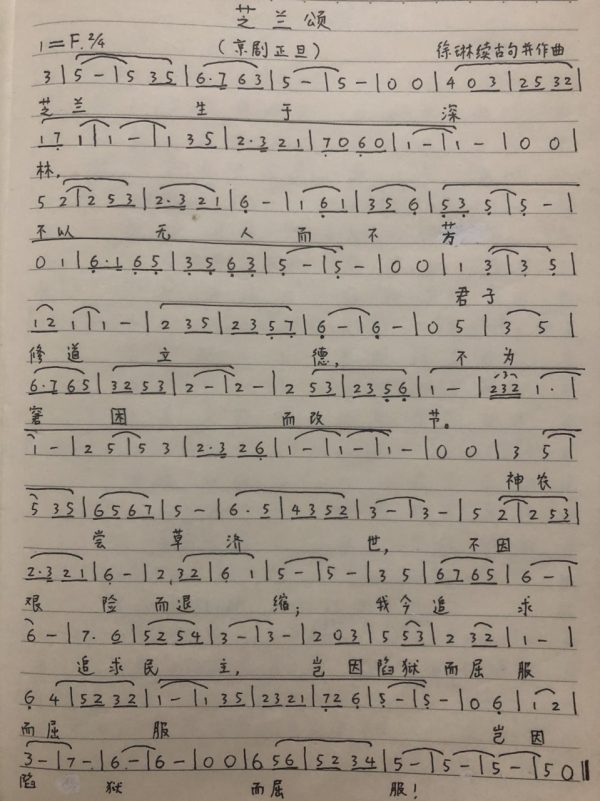 芝兰颂
1=F 2/4 (京剧正旦) 徐琳续古句并作曲
3|5-|5 35|6·7 63|5-|5-|0 0|4 03|25 32|
芝兰 生 于 深
17 1|1-|1 35|2·3 21|70 60|1-|1-|0 0|
林,
5 2|2 53|2·3 21|6-|1 61|35 6|53 5|5-|
不以 无 人 而 不 芳
0 1|6·1 65|35 63|5-|5-|0 0|1 3|3 5|
君子
12 1|1-|2 35|23 57|6-|6-|0 5|3 5|
修 道 立 德, 不 为
6·7 65|32 53|2-|2-|2 53|23 56|1-|232 1·|
窘 困 而改 节。
1-|2 5|5 3|2·3 26|1-|1-|1-|0 0|3 5|
神农
5 35|65 67|5-|6·5|43 52|3-|3-|5 2|2 53|
尝 草 济 世, 不因
2·3 21|6-|2 32|6 1|5-|5-|3 5|67 65|6-|
艰 险 而退 缩; 我今追 求
6-|7·6|52 54|3-|3-|2 03|5 53|2 32|1-|
追求民 主, 岂因陷狱 而屈 服
6 4|52 32|1-|1 35|23 21|72 6|5-|5-|0 6|1 2|
而屈 服 岂因
3-|7-|6-|6-|0 0|6 56|52 34|5-|5-|5-|5 0‖
陷 狱 而屈 服!